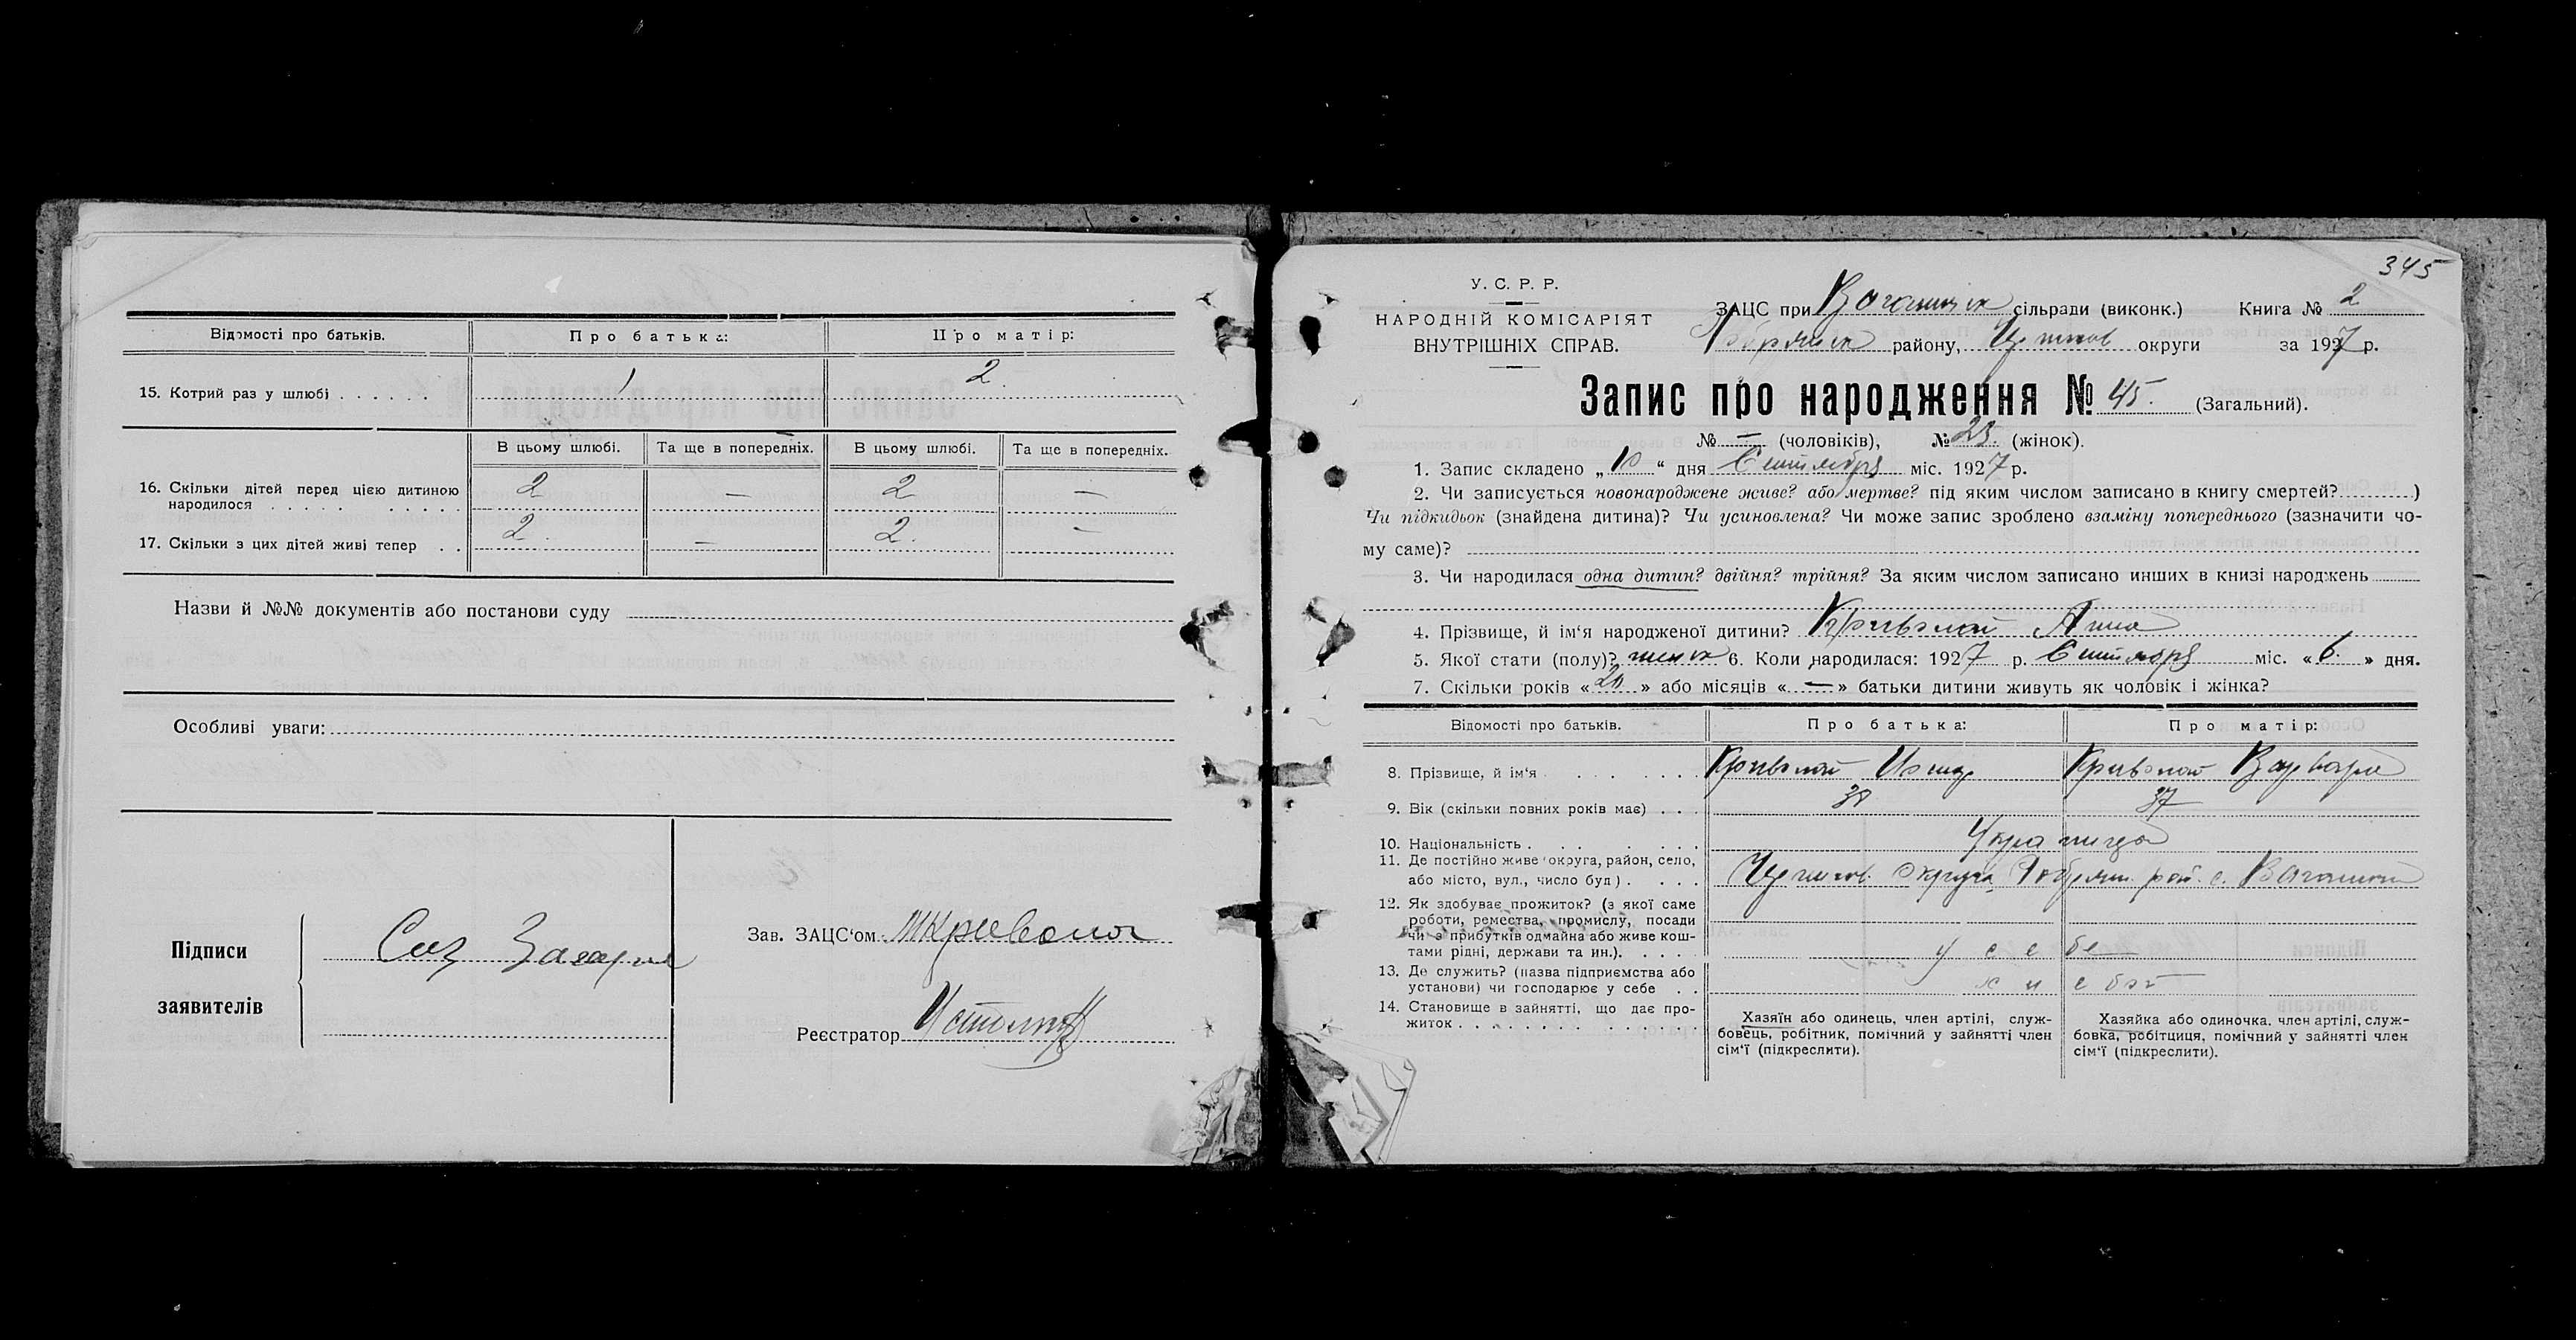 Відомості про батьків. Про батька: Про матір:
15. Котрий раз у шлюбі . . . . . . 1 2.
В цьому шлюбі. Та ще в попередніх. В цьому шлюбі. Та ще в попередніх.
16. Скільки дітей перед цією дитиною 2 — 2 —
народилося . . . . . . . . . .
17. Скільки з цих дітей живі тепер . . 2. — 2. —
Назви й №№ документів або постанови суду
Особливі уваги:
Підписи
заявителів
Зав. ЗАЦС‘ом
Реєстратор
345
У. С. Р. Р.
НАРОДНІЙ КОМІСАРІЯТ
ВНУТРІШНІХ СПРАВ.
ЗАЦС при сільради (виконк.) Книга № 2
району, округи за 1927 р.
Запис про народження № 45. (Загальний).
№ — (чоловіків), № 23. (жінок).
1. Запис складено „ 10 “ дня Сентября міс. 1927 р.
2. Чи записується новонароджене живе? або мертве? під яким числом записано в книгу смертей? )
Чи підкидьок (знайдена дитина)? Чи усиновлена? Чи може запис зроблено взаміну попереднього (зазначити чо-
му саме)?
3. Чи народилася одна дитин? двійня? трійня? За яким числом записано инших в книзі народжень
4. Прізвище, й ім‘я народженої дитини? Кривонай Анна
5. Якої стати (полу)? женск 6. Коли народилася: 1927 р. Сентября міс. « 6. » дня.
7. Скільки років « 20 » або місяців « — » батьки дитини живуть як чоловік і жінка?
Відомості про батьків. Про батька: Про матір:
8. Прізвище, й ім‘я . . . . . . Варвара
9. Вік (скільки повних років має) . . . 38 37
10. Національність . . . . . . .
11. Де постійно живе (округа, район, село,
або місто, вул., число буд) . . . . округа
12. Як здобуває прожиток? (з якої саме
роботи, ремества, промислу, посади
чи з прибутків одмайна або живе кош-
тами рідні, держави та ин.). . . . . у себе
13. Де служить? (назва підприємства або
установи) чи господарює у себе . .
14. Становище в зайнятті, що дає про-
житок . . . . . . . . . . . . . .
Хазяїн або одинець, член артілі, служ-
бовець, робітник, помічний у зайнятті член
сім‘ї (підкреслити).
Хазяйка або одиночка. член артілі, служ-
бовка, робітциця, помічний у зайнятті член
сім‘ї (підкреслити).